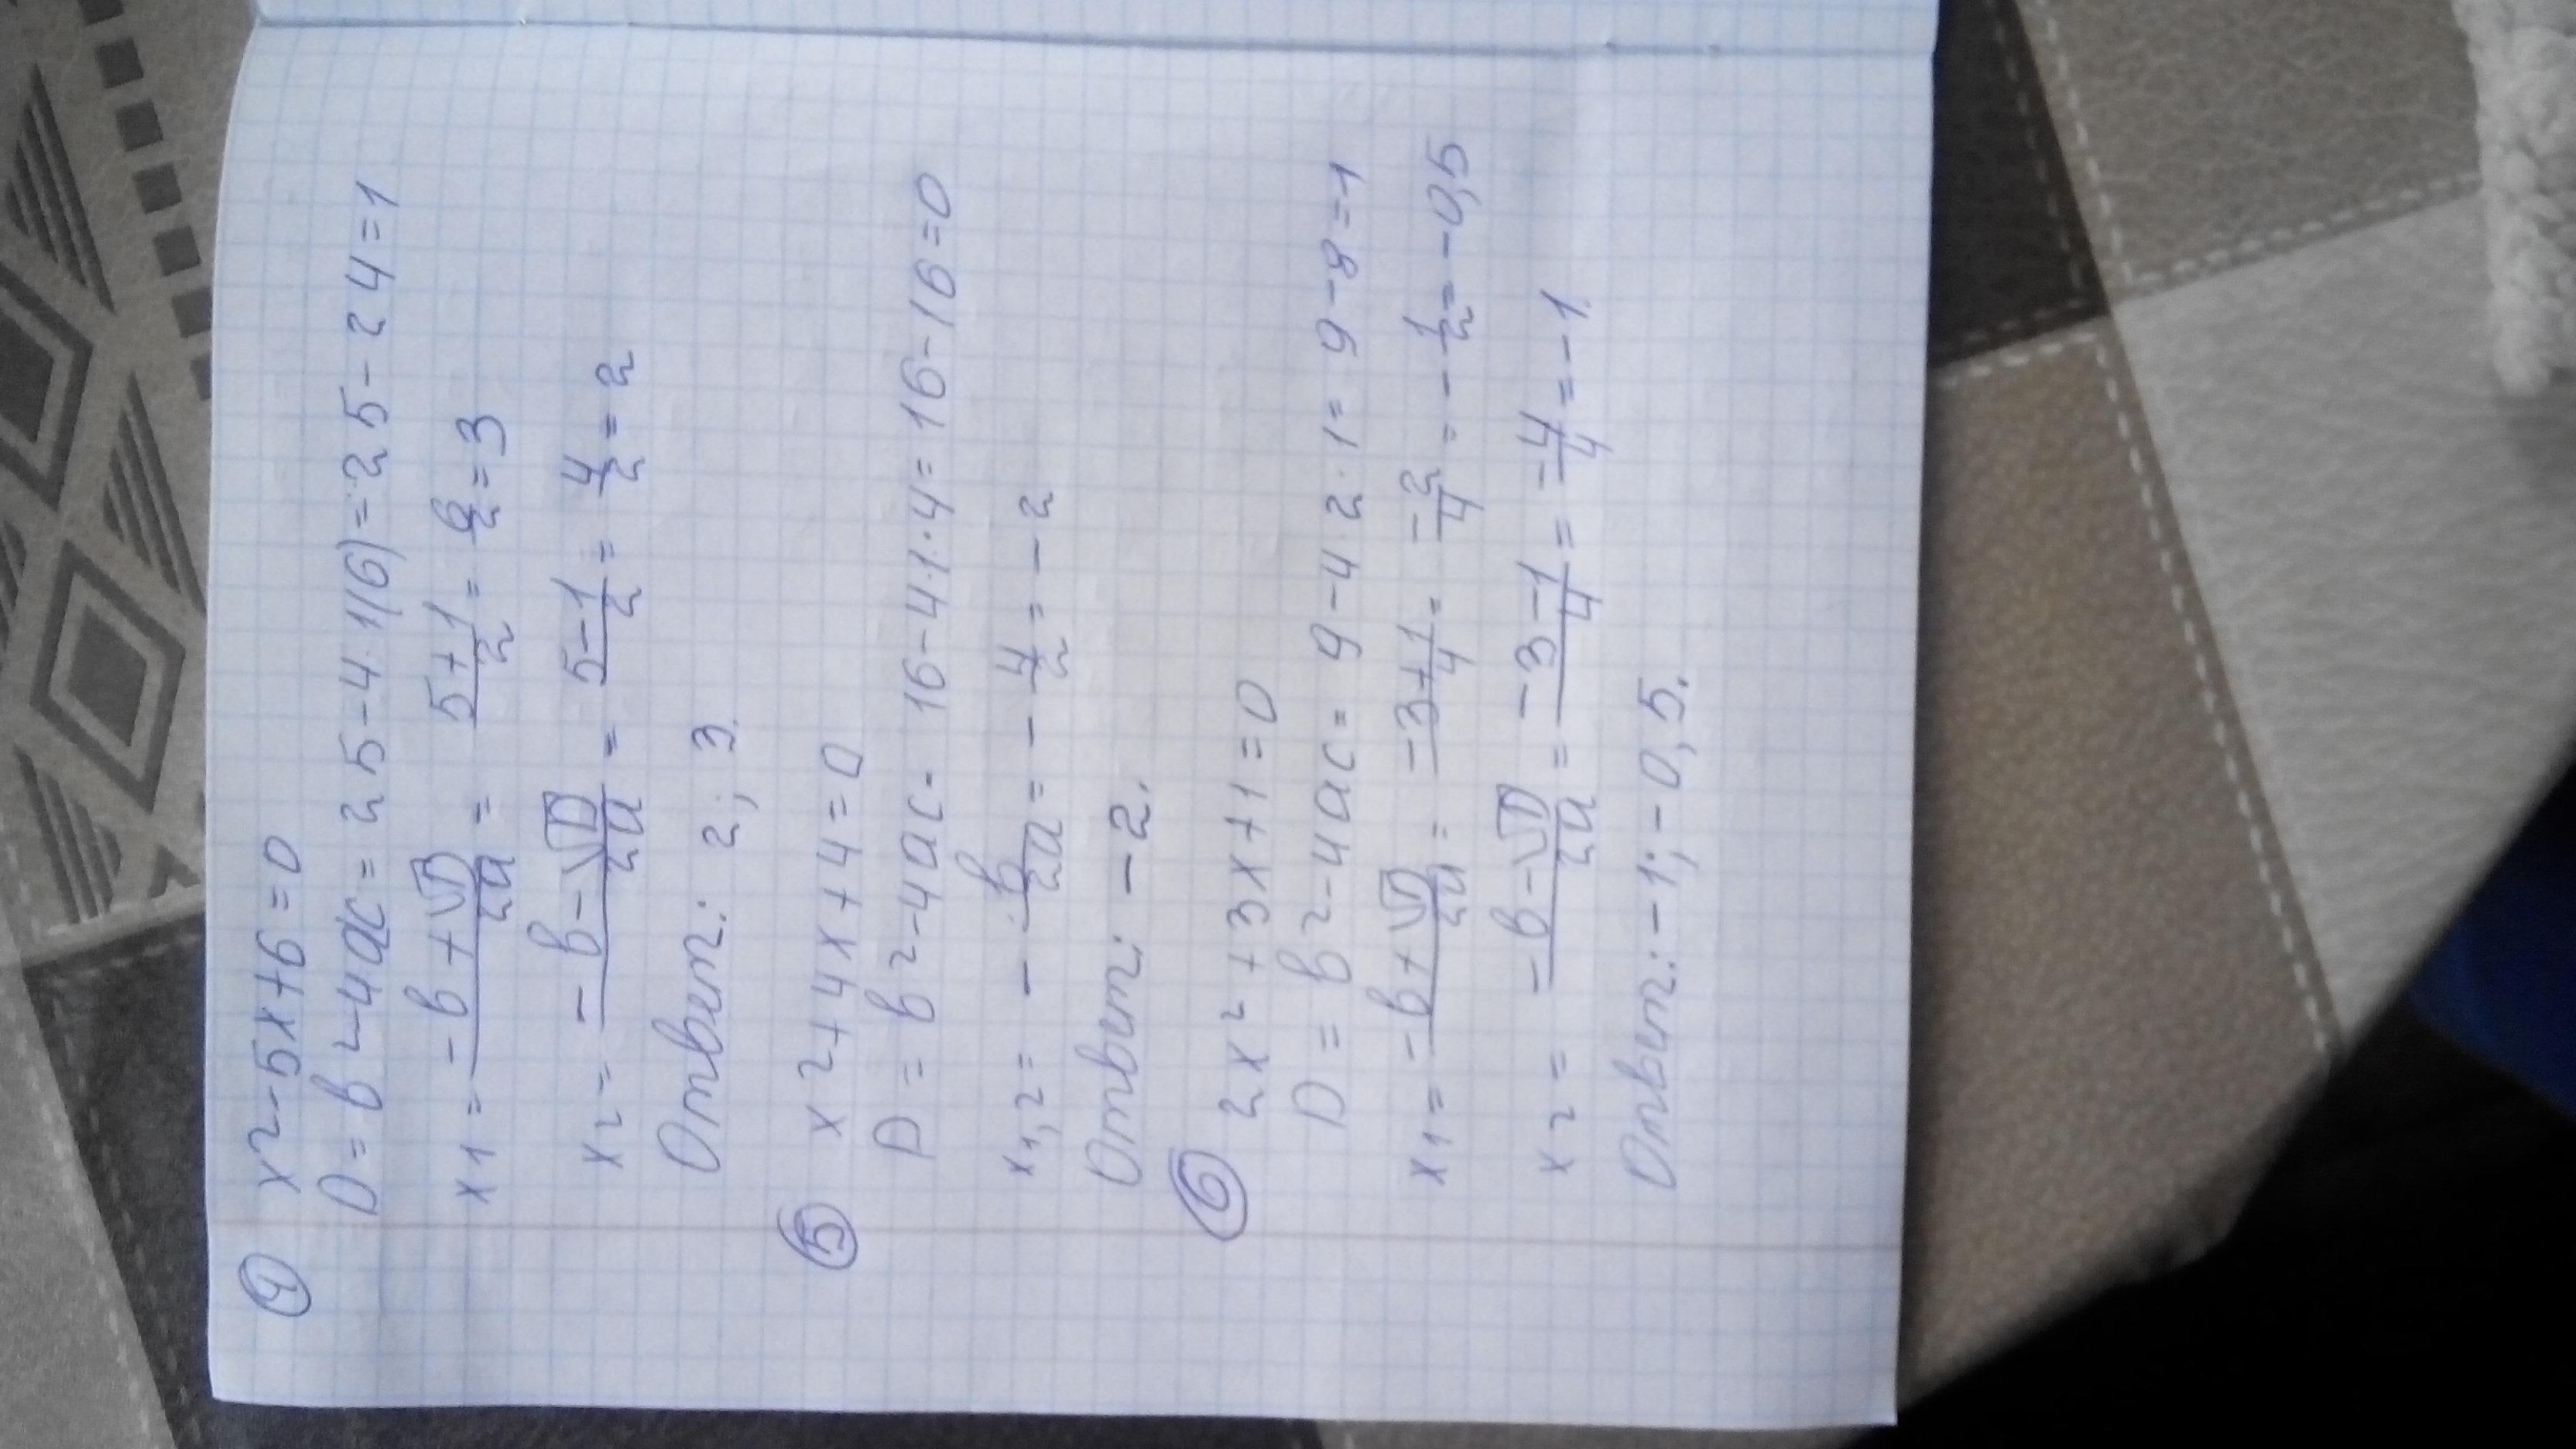 ④ x²-5x+6=0
D=b²-4ac=25-4·1(6)=25-24=1
x₁=(-b+√D)/2a=(5+1)/2=6/2=3
x₂=(-b-√D)/2a=(5-1)/2=4/2=2
Ответ: 2; 3.
⑤ x²+4x+4=0
D=b²-4ac-16-4·1·4=16-16=0
x₁,₂=-b/2a=-4/2=-2
Ответ: -2.
⑥ 2x²+3x+1=0
D=b²-4ac=9-4·2·1=9-8=1
x₁=(-b+√D)/2a=(-3+1)/4=-2/4=-1/2=-0,5
x₂=(-b-√D)/2a=(-3-1)/4=-4/4=-1.
Ответ: -1; -0,5.